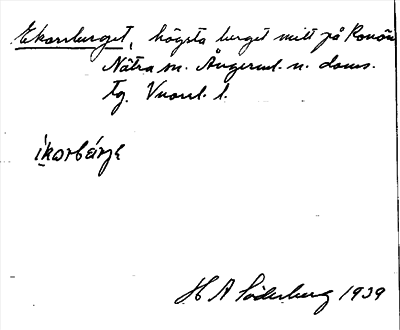 Ekorrberget, högsta berget mitt på Ronön
Nätra sn. Ångerml. n. doms.
tg. Vnorrl. l.
ikorbérje
H A Söderberg 1939